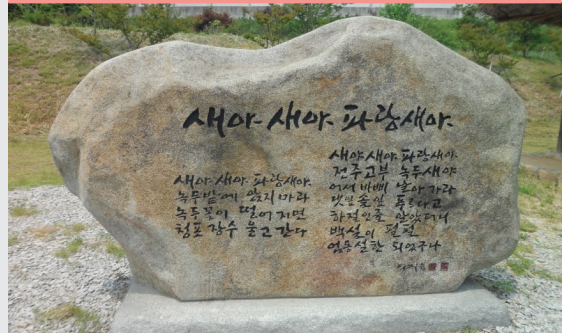 새야 새야 파랑새야
새야 새야 파랑새야
녹두밭에 앉지 마라
녹두꽃이 떨어지면
청포장수 울고 간다
새야 새야 파랑새야
전주고부 녹두새야
어서 바삐 날아가라
댓잎 솔잎 푸르다고
하절인줄 알았더니
백설이 펄펄
엄동설한 되었구나